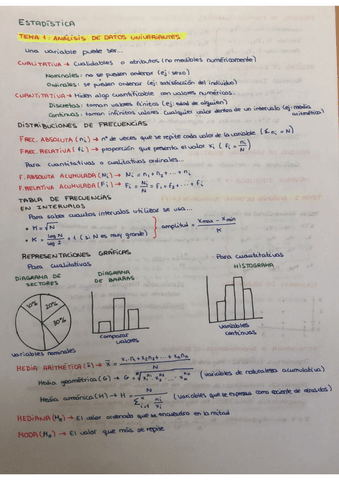 ESTADÍSTICA
TEMA 1: ANÁLISIS DE DATOS UNIVARIANTES
Una variable puede ser...
CUALITATIVA → Cualidades o atributos (no medibles numéricamente)
Nominales: no se pueden ordenar (ej: sexo)
Ordinales: se pueden ordenar (ej: satisfacción del individuo)
CUANTITATIVA → Miden algo cuantificable con valores numéricos.
Discretas: toman valores finitos (ej: edad de alguien)
Continuas: toman infinitos valores. Cualquier valor dentro de un intervalo (ej: media aritmética)
DISTRIBUCIONES DE FRECUENCIAS
FREC. ABSOLUTA (ni) → nº de veces que se repite cada valor de la variable (Σ ni = N)
FREC. RELATIVA (fi) → proporción que presenta el valor xi (fi = ni/N)
Para cuantitativas o cualitativas ordinales...
F. ABSOLUTA ACUMULADA (Ni) → Ni = n1 + n2 + ... + ni
F. RELATIVA ACUMULADA (Fi) → Fi = Ni/N = f1 + f2 + ... + fi
TABLA DE FRECUENCIAS
EN INTERVALOS
Para saber cuantos intervalos utilizar se usa...
• K = √N
• K = log N / log 2 + 1 (si N es muy grande)
amplitud = xmax - xmin / K
REPRESENTACIONES GRÁFICAS
Para cualitativas
Para cuantitativas
DIAGRAMA DE SECTORES
DIAGRAMA DE BARRAS
HISTOGRAMA
20%
30%
variables nominales
comparar valores
variables continuas
MEDIA ARITMÉTICA (x̄) → x̄ = x1·n1 + x2·n2 + ... + xn·nn / N
Media geométrica (G) → G = (variables de naturaleza acumulativa)
Media armónica (H) → H = (variables que se expresan como cociente de unidades)
MEDIANA (Me) → El valor ordenado que se encuentra en la mitad
MODA (Mo) → El valor que más se repite